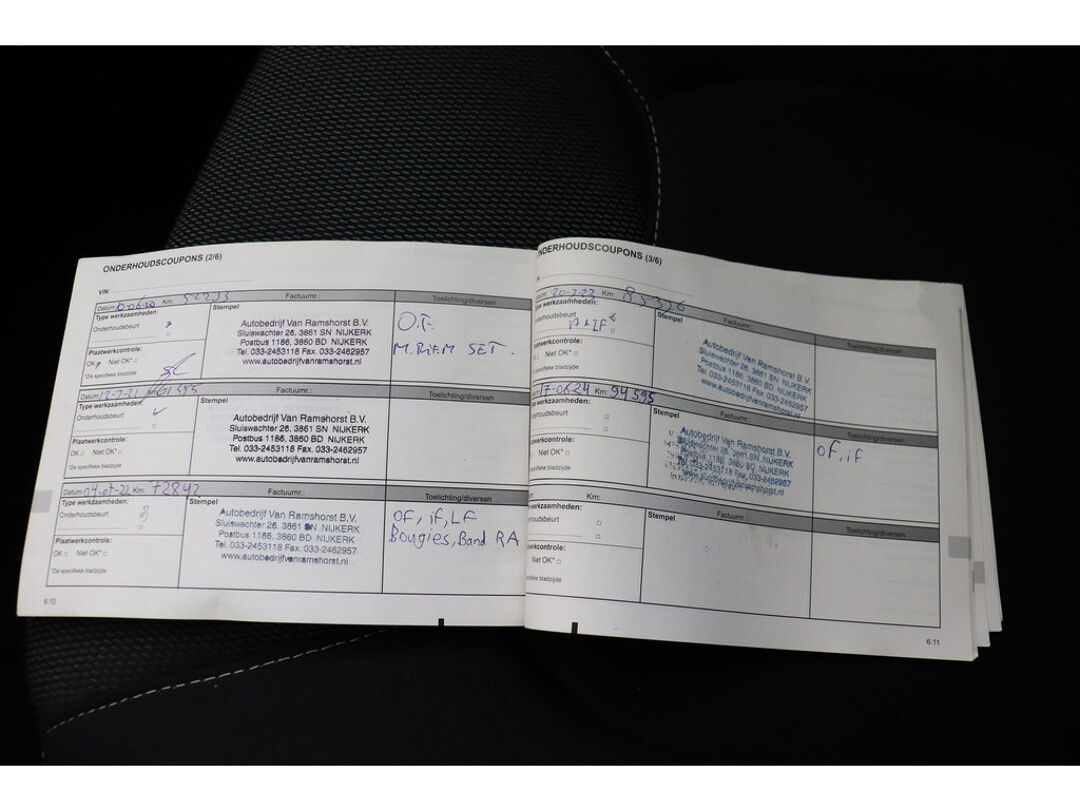 ONDERHOUDSCOUPONS (2/6)
VIN:
Datum: Km: Factuurnr.: Toelichting/diversen
Type werkzaamheden:
Onderhoudsbeurt
Stempel
Autobedrijf Van Ramshorst B.V.
Sluiswachter 26, 3861 SN NIJKERK
Postbus 1186, 3860 BD NIJKERK
Tel. 033-2453118 Fax. 033-2462957
www.autobedrijfvanramshorst.nl
M.RIEM SET.
Plaatwerkcontrole:
OK Niet OK*
*Zie specifieke bladzijde
Datum: 12-7-21 Km: 61585 Factuurnr.: Toelichting/diversen
Type werkzaamheden:
Onderhoudsbeurt
Stempel
Autobedrijf Van Ramshorst B.V.
Sluiswachter 26, 3861 SN NIJKERK
Postbus 1186, 3860 BD NIJKERK
Tel. 033-2453118 Fax. 033-2462957
www.autobedrijfvanramshorst.nl
Plaatwerkcontrole:
OK Niet OK*
*Zie specifieke bladzijde
Datum: 04-07-22 Km: 72842 Factuurnr.: Toelichting/diversen
Type werkzaamheden:
Onderhoudsbeurt
Stempel
Autobedrijf Van Ramshorst B.V.
Sluiswachter 26, 3861 SN NIJKERK
Postbus 1186, 3860 BD NIJKERK
Tel. 033-2453118 Fax. 033-2462957
www.autobedrijfvanramshorst.nl
OF, iF, LF
Bougies, Band RA
Plaatwerkcontrole:
OK Niet OK*
*Zie specifieke bladzijde
6.10
ONDERHOUDSCOUPONS (3/6)
20-2-23 Km: 85326 Factuurnr.: Toelichting/diversen
Type werkzaamheden:
Onderhoudsbeurt
Stempel
Autobedrijf Van Ramshorst B.V.
Sluiswachter 26, 3861 SN NIJKERK
Postbus 1186, 3860 BD NIJKERK
Tel. 033-2453118 Fax. 033-2462957
www.autobedrijfvanramshorst.nl
Niet OK*
specifieke bladzijde
17-06-24 Km: 94595 Factuurnr.: Toelichting/diversen
werkzaamheden:
derhoudsbeurt
Stempel
Autobedrijf Van Ramshorst B.V.
Sluiswachter 26, 3861 SN NIJKERK
Postbus 1186, 3860 BD NIJKERK
Tel. 033-2453118 Fax. 033-2462957
www.autobedrijfvanramshorst.nl
OF, iF
werkcontrole:
Niet OK*
specifieke bladzijde
Km: Factuurnr.: Toelichting/diversen
werkzaamheden:
houdsbeurt
Stempel
werkcontrole:
Niet OK*
specifieke bladzijde
6.11